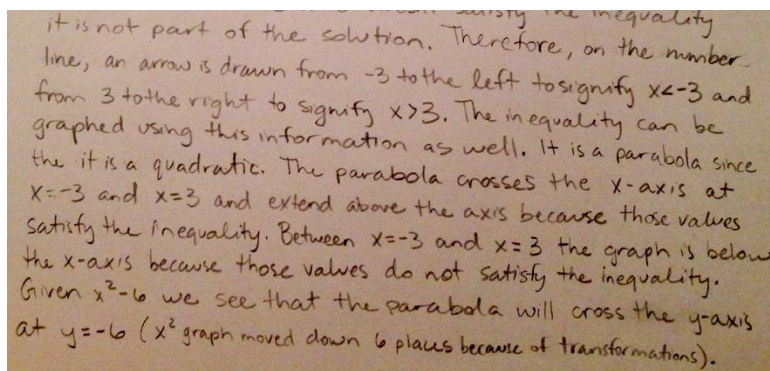 satisfy the inequality
it is not part of the solution. Therefore, on the number
line, an arrow is drawn from -3 to the left to signify x<-3 and
from 3 to the right to signify x>3. The inequality can be
graphed using this information as well. It is a parabola since
the it is a quadratic. The parabola crosses the x-axis at
x=-3 and x=3 and extend above the axis because those values
satisfy the inequality. Between x=-3 and x=3 the graph is below
the x-axis because those values do not satisfy the inequality.
Given x²-6 we see that the parabola will cross the y-axis
at y=-6 (x² graph moved down 6 places because of transformations).